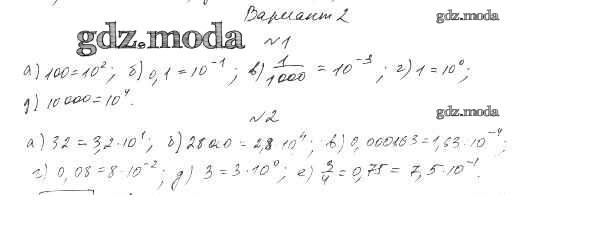 Вариант 2
gdz.moda
gdz.moda
№1
а) 100=10²; б) 0,1=10⁻¹; в) 1/1000 = 10⁻³; г) 1=10⁰;
д) 10000=10⁴.
gdz.moda
№2
а) 32=3,2·10¹; б) 28000=2,8·10⁴; в) 0,000163=1,63·10⁻⁴;
г) 0,08=8·10⁻²; д) 3=3·10⁰; е) 3/4=0,75=7,5·10⁻¹.